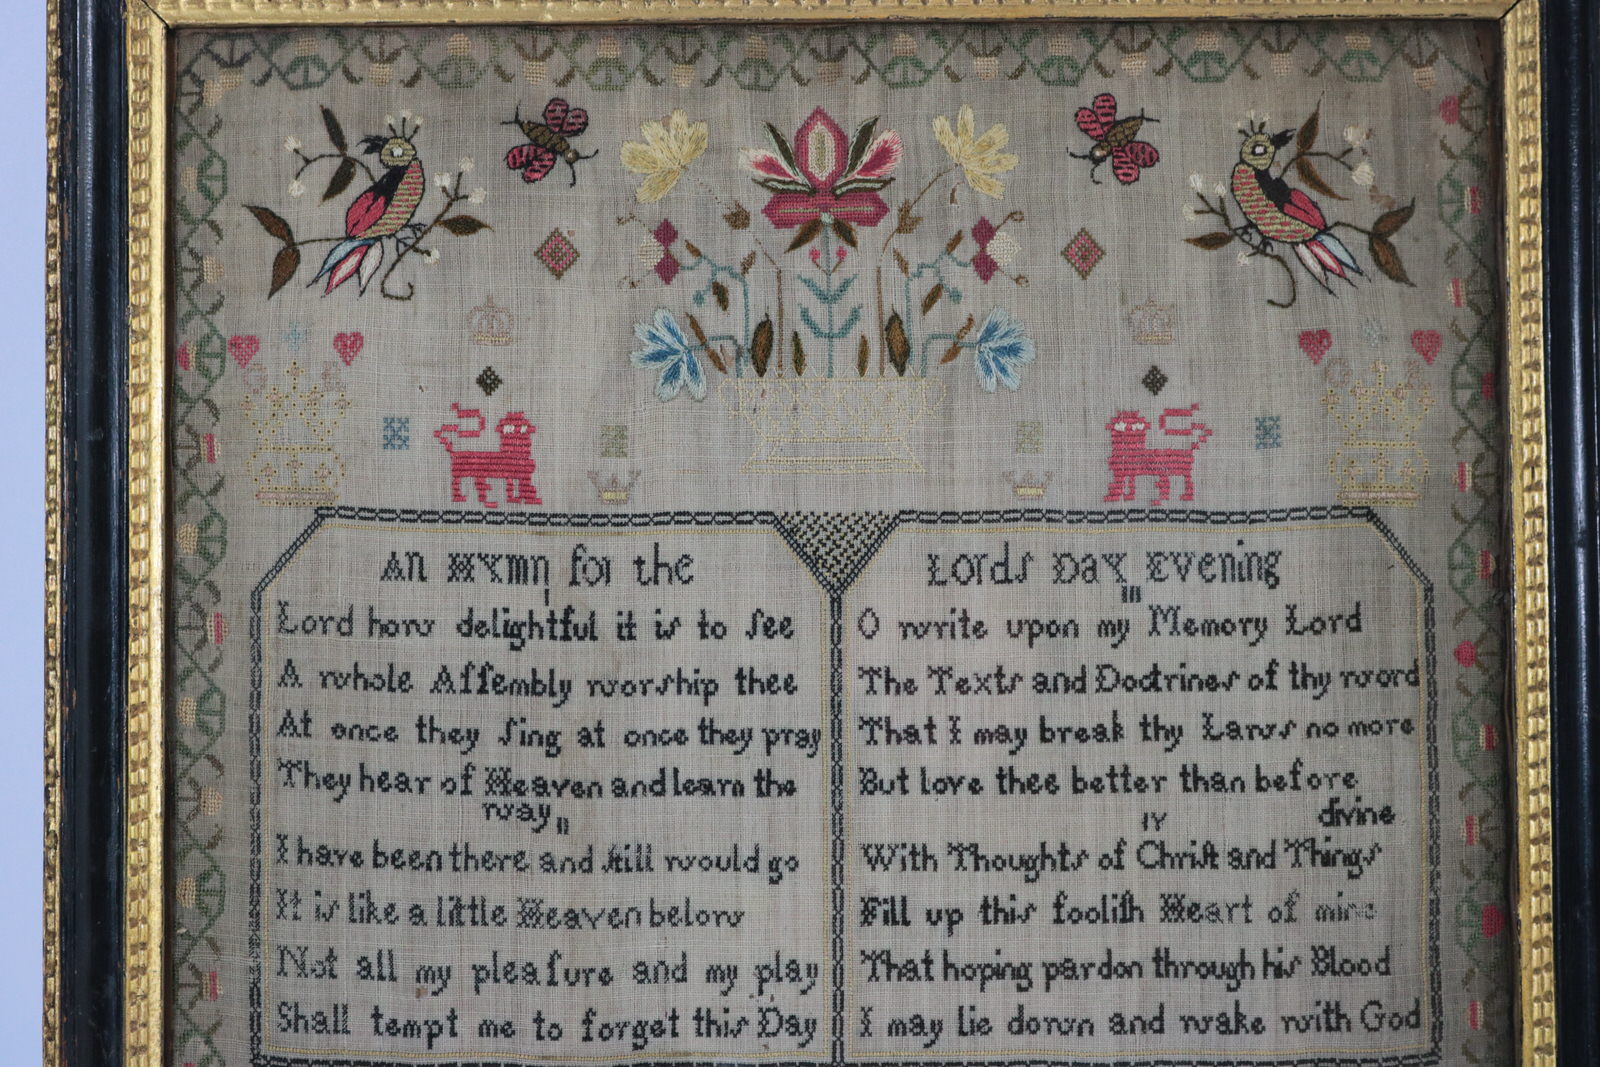 An Hymn for the
I
Lord how delightful it is to ſee
A whole Aſſembly worship thee
At once they ſing at once they pray
They hear of Heaven and learn the
way
II
I have been there and ſtill would go
It is like a little Heaven below
Not all my pleaſure and my play
Shall tempt me to forget this Day
Lords Day Evening
III
O write upon my Memory Lord
The Texts and Doctrines of thy word
That I may break thy Laws no more
But love thee better than before
IV
divine
With Thoughts of Chriſt and Things
Fill up this fooliſh Heart of mine
That hoping pardon through his Blood
I may lie down and wake with God